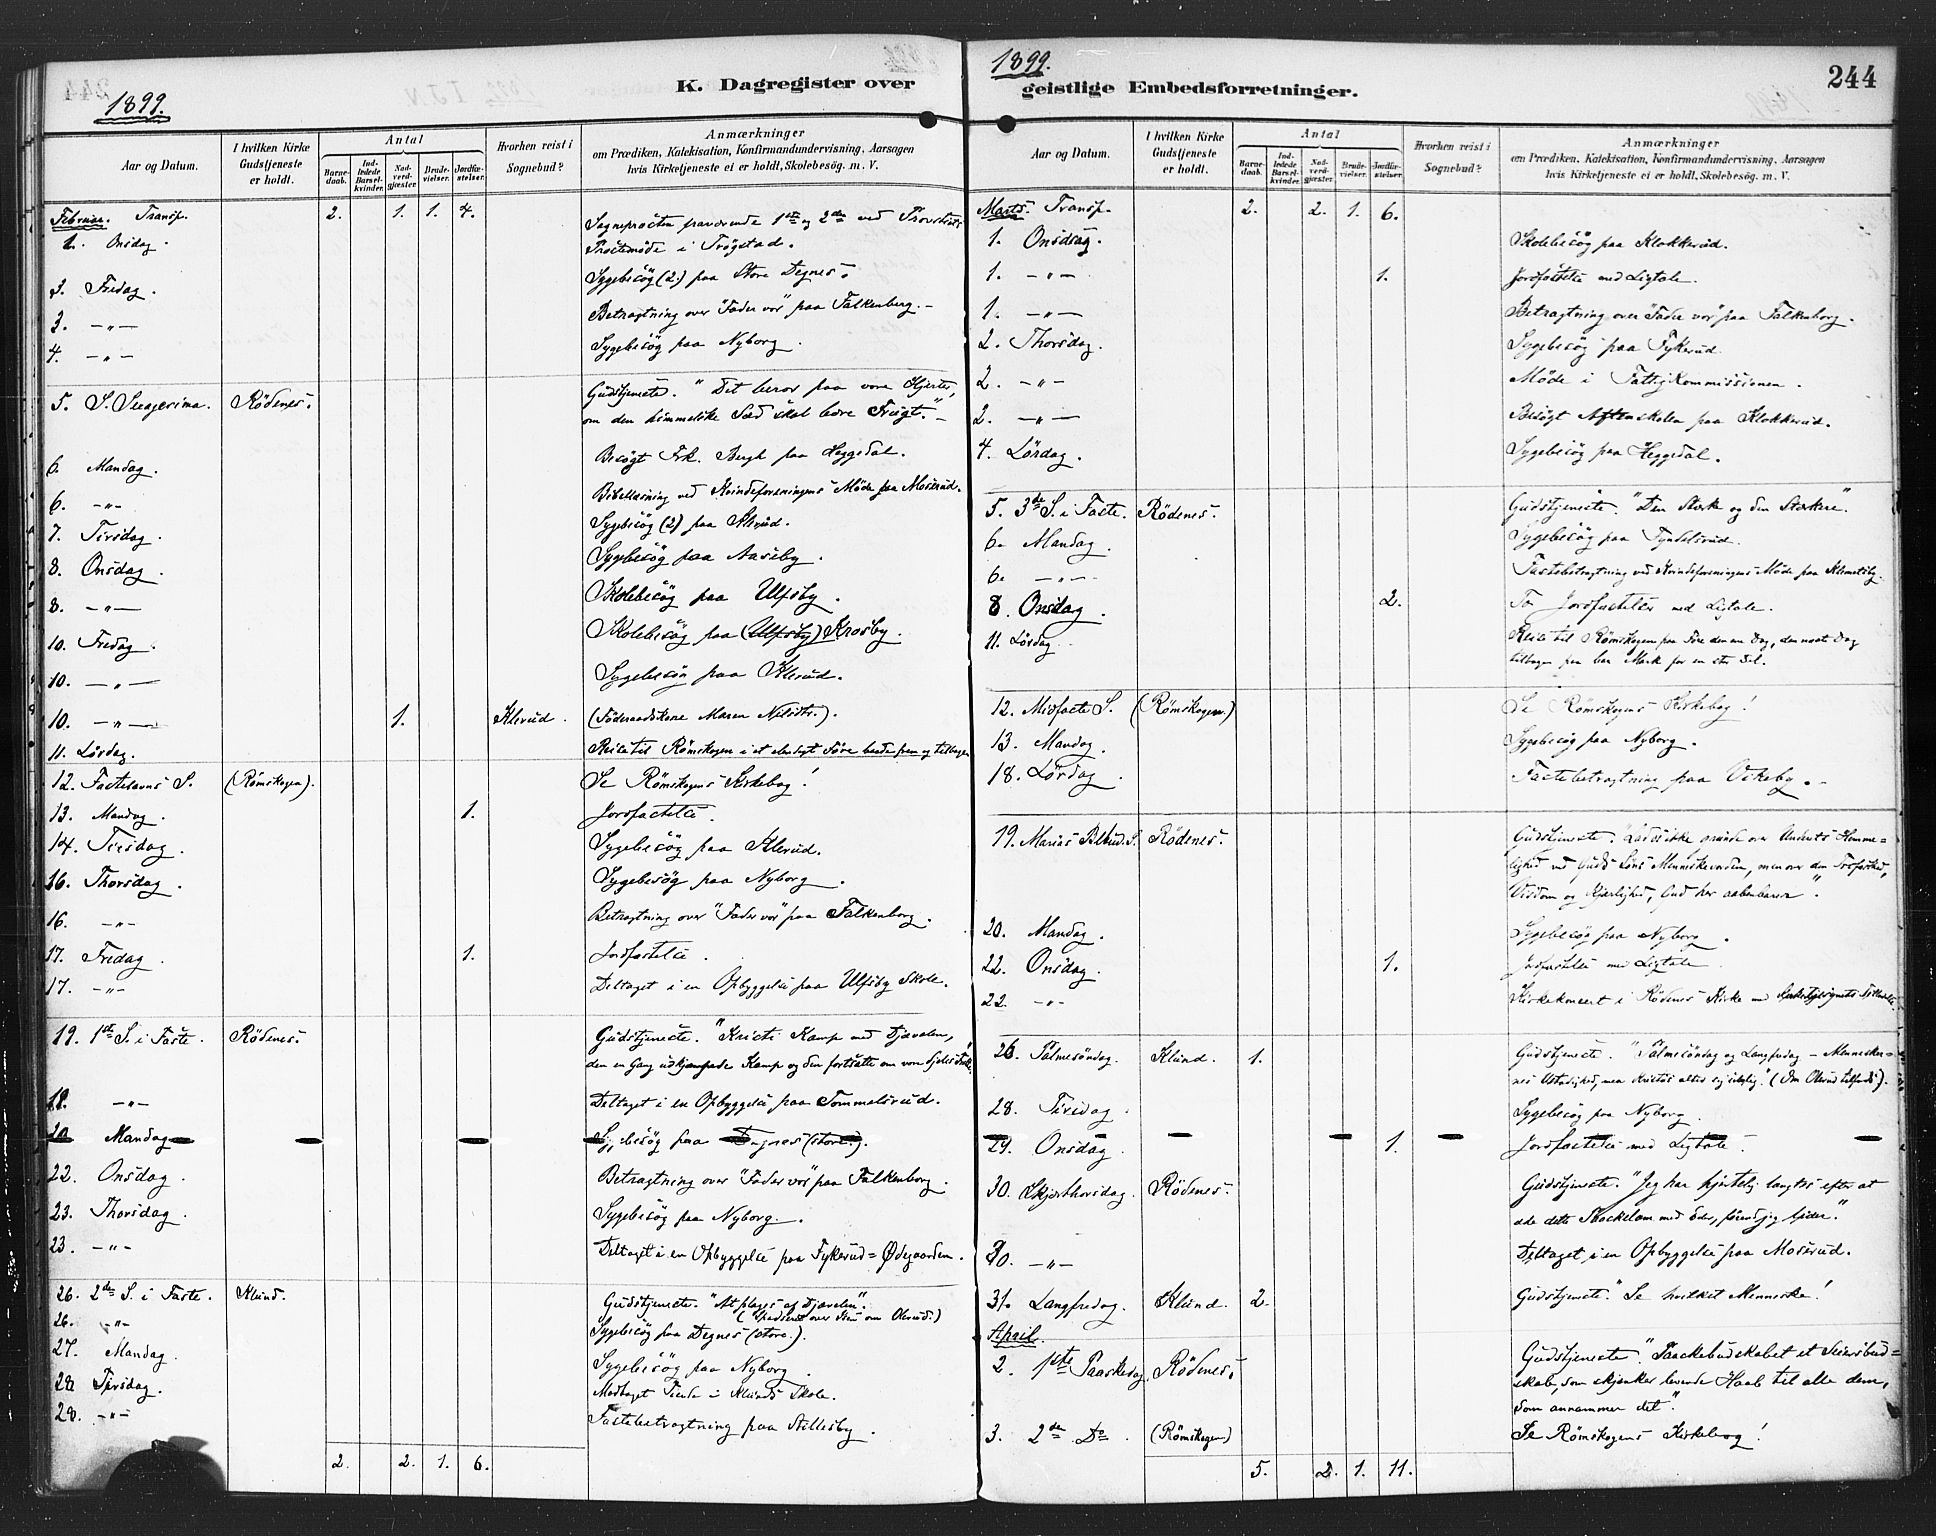 1899.
K. Dagregister over
Aar og Datum.
I hvilken Kirke Gudstjeneste er holdt.
Antal
Barne-daab.
Ind-ledede Barsel-kvinder.
Nad-verd-gjæster.
Brude-vielser.
Jordfæ-stelser.
Hvorhen reist i Sognebud?
Anmærkninger
om Prædiken, Katekisation, Konfirmandundervisning, Aarsagen
hvis Kirketjeneste ei er holdt, Skolebesøg. m. V.
Februar. Transp. 2. 1. 1. 4.
1. Onsdag. Sognepræsten fraværende 1ste og 2den ved Provstiets
Præstemøde i Trøgstad.
3. Fredag. Sygebesøg (2.) paa Store Degnes.
3. -"- Betragtning over "Fader vor" paa Falkenberg.-
4. -"- Sygebesøg paa Nyborg.
5. S. Sexagesima. Rødenes. Gudstjeneste. "Det beror paa vore Hjerter,
om den himmelske Sæd skal bære Frugt."-
6. Mandag. Besøgt Frk. Bergh paa Heggedal.
6. -"- Bibellæsning ved Kvindeforeningens Møde paa Moserud.
7. Tirsdag. Sygebesøg (2) paa Klerud.
8. Onsdag. Sygebesøg paa Aaseby.
8. -"- Skolebesøg paa Ulfsby.
10. Fredag. Skolebesøg paa (Ulfsby) Krosby.
10. -"- Sygebesøg paa Klerud.
10. -"- 1. Klerud. (Føderaadskone Maren Nilsdtr.).
11. Lørdag. Reise til Rømskogen i et elendigt Føre baade frem og tilbage
12. Fastelavns S. (Rømskogen). Se Rømskogens Kirkebog!
13. Mandag. 1. Jordfæstelse.
14. Tirsdag. Sygebesøg paa Klerud.
16. Thorsdag. Sygebesøg paa Nyborg.
16. -"- Betragtning over "Fader vor" paa Falkenborg.
17. Fredag. 1. Jordfæstelse.
17. -"- Deltaget i en Opbyggelse paa Ulfsby Skole.
19. 1ste S. i Faste. Rødenes. Gudstjeneste. "Kristi Kamp med Djævelen,
den en Gang udkjæmpede Kamp og den fortsatte om vore Sjeles
19. -"- Deltaget i en Opbyggelse paa Tommelsrud.
20 Mandag Sygebesøg paa Degnes (store).
22. Onsdag. Betragtning over "Fader vor" paa Falkenborg.
23. Thorsdag. Sygebesøg paa Nyborg.
23. -"- Deltaget i en Opbyggelse paa Fykerud=Ødegaarden.
26. 2den S. i Faste. Klund. Gudstjeneste. "At plages af Djævelen."
26. -"- Sygebesøg paa Degnes (store.).
27. Mandag. Sygebesøg paa Nyborg.
28 Tirsdag. Modtaget Tiende i Klunds Skole.
28. -"- Fastebetragtning paa Stillesby.
2. 2. 1. 6.
1899.
geistlige Embedsforretninger.
244
Aar og Datum.
I hvilken Kirke Gudstjeneste er holdt.
Antal
Barne-daab.
Ind-ledede Barsel-kvinder.
Nad-verd-gjæster.
Brude-vielser.
Jordfæ-stelser.
Hvorhen reist i Sognebud?
Anmærkninger
om Prædiken, Katekisation, Konfirmandundervisning, Aarsagen
hvis Kirketjeneste ei er holdt, Skolebesøg. m. V.
Marts. Transp. 2. 2. 1. 6.
1. Onsdag. Skolebesøg paa Klokkerud.
1. -"- 1. Jordfæstelse med Ligtale.
1. -"- Betragtning over "Fader vor" paa Falkenborg.
2. Thorsdag. Sygebesøg paa Fykerud
2. -"- Møde i Fattigkommissionen.
2. -"- Besøgt Aftenskolen paa Klokkerud.
4. Lørdag. Sygebesøg paa Heggedal.
5. 3de S. i Faste. Rødenes. Gudstjeneste. "Den Stærke og den Stærkere."
6. Mandag. Sygebesøg paa Tyndelsrud.
6. -"- Fastebetragtning ved Kvindeforeningens Møde paa Klemetsby.
8. Onsdag. 2. To Jordfæstelser med Ligtale.
11. Lørdag. Reise til Rømskogen paa Føre den ene Dag, den næste Dag
tilbage paa bar Mark for en stor Del.
12. Midfaste S. (Rømskogen.) Se Rømskogens Kirkebog!
13. Mandag. Sygebesøg paa Nyborg.
18. Lørdag. Fastebetragtning paa Vikeby.-
19. Marias Bebud. S. Rødenes. Gudstjeneste. "Lad os ikke grunde over Underets Hemme=
lighed ved Guds Søns Menneskevorden, men over den Trofasthed,
Visdom og Kjærlighed, Gud her aabenbarer."
20. Mandag. Sygebesøg paa Nyborg.
22. Onsdag. 1. Jordfæstelse med Ligtale.
22. -"- Kirkekoncert i Rødenes Kirke ved
26. Palmesøndag. Klund. 1. Gudstjeneste. "Palmesøndag og Langfredag - Mennesker=
nes Ustadighed, men Kristus altid sig selv lig."
28. Tirsdag. Sygebesøg paa Nyborg.
29. Onsdag. 1. Jordfæstelse med Ligtale.
30. Skjærthorsdag. Rødenes. Gudstjeneste. "Jeg har hjertelig længtes efter at
æde dette Paaskelam med Eder, førend jeg lider."
30. -"- Deltaget i en Opbyggelse paa Moserud.
31. Langfredag. Klund. 2. Gudstjeneste. "Se hvilket Menneske!
April.
2. 1ste Paaskedag. Rødenes. Gudstjeneste. "Paaskebudskabet et Seiersbud=
skab, som skjænker levende Haab til alle dem,
som annammer det."
3. 2den Do. (Rømskogen) Se Rømskogens Kirkebog!
5. 2. 1. 11.